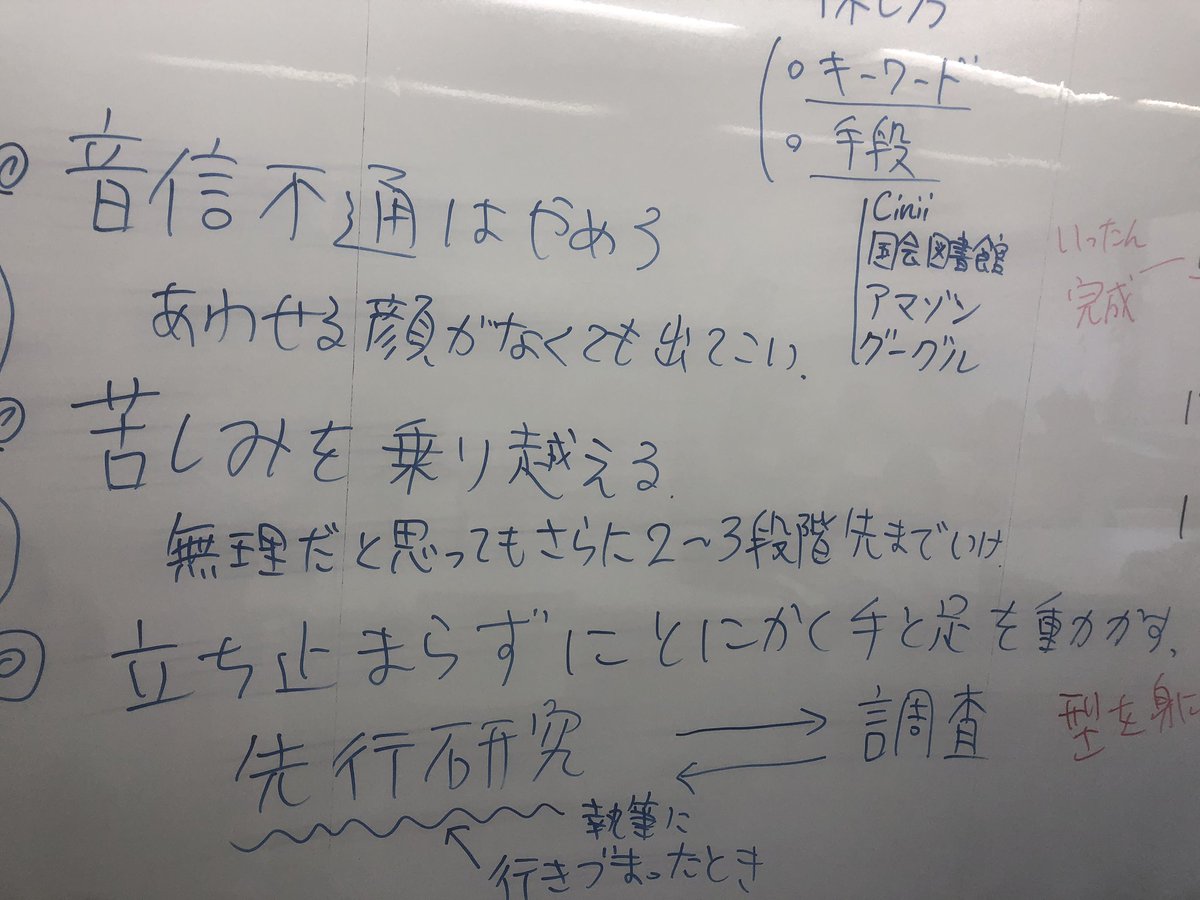 ◎ 音信不通はやめろ
あわせる顔がなくても出てこい.
◎ 苦しみを乗り越える.
無理だと思ってもさらに2〜3段階先までいけ.
◎ 立ち止まらずにとにかく手と足を動かす.
先行研究 ⇄ 調査
執筆に
行きづまったとき
探し方
○ キーワード
○ 手段
Cinii
国会図書館
アマゾン
グーグル
いったん
完成
型を身に